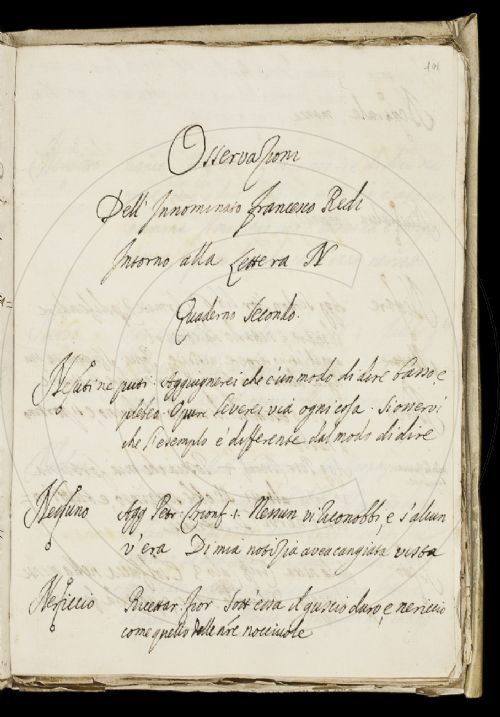 191
Osservazioni
Dell' Innominato Francesco Redi
Intorno alla Lettera N
Quaderno Secondo.
Nè puti ne puti. Aggiugnerei che è un modo di dire basso, e
plebeo. Opure leverei via ogni cosa. Si osservi
che l'esemplo è differente dal modo di dire
Nessuno Agg Petr Trionf. 1. Nessun vi riconobbi, e s'alcun
v'era Di mia notizia avea cangiata vista
Nericcio Ricettar. Fior Sott' essa il guscio duro, e nericcio
come quello delle nr̃e nocciuole